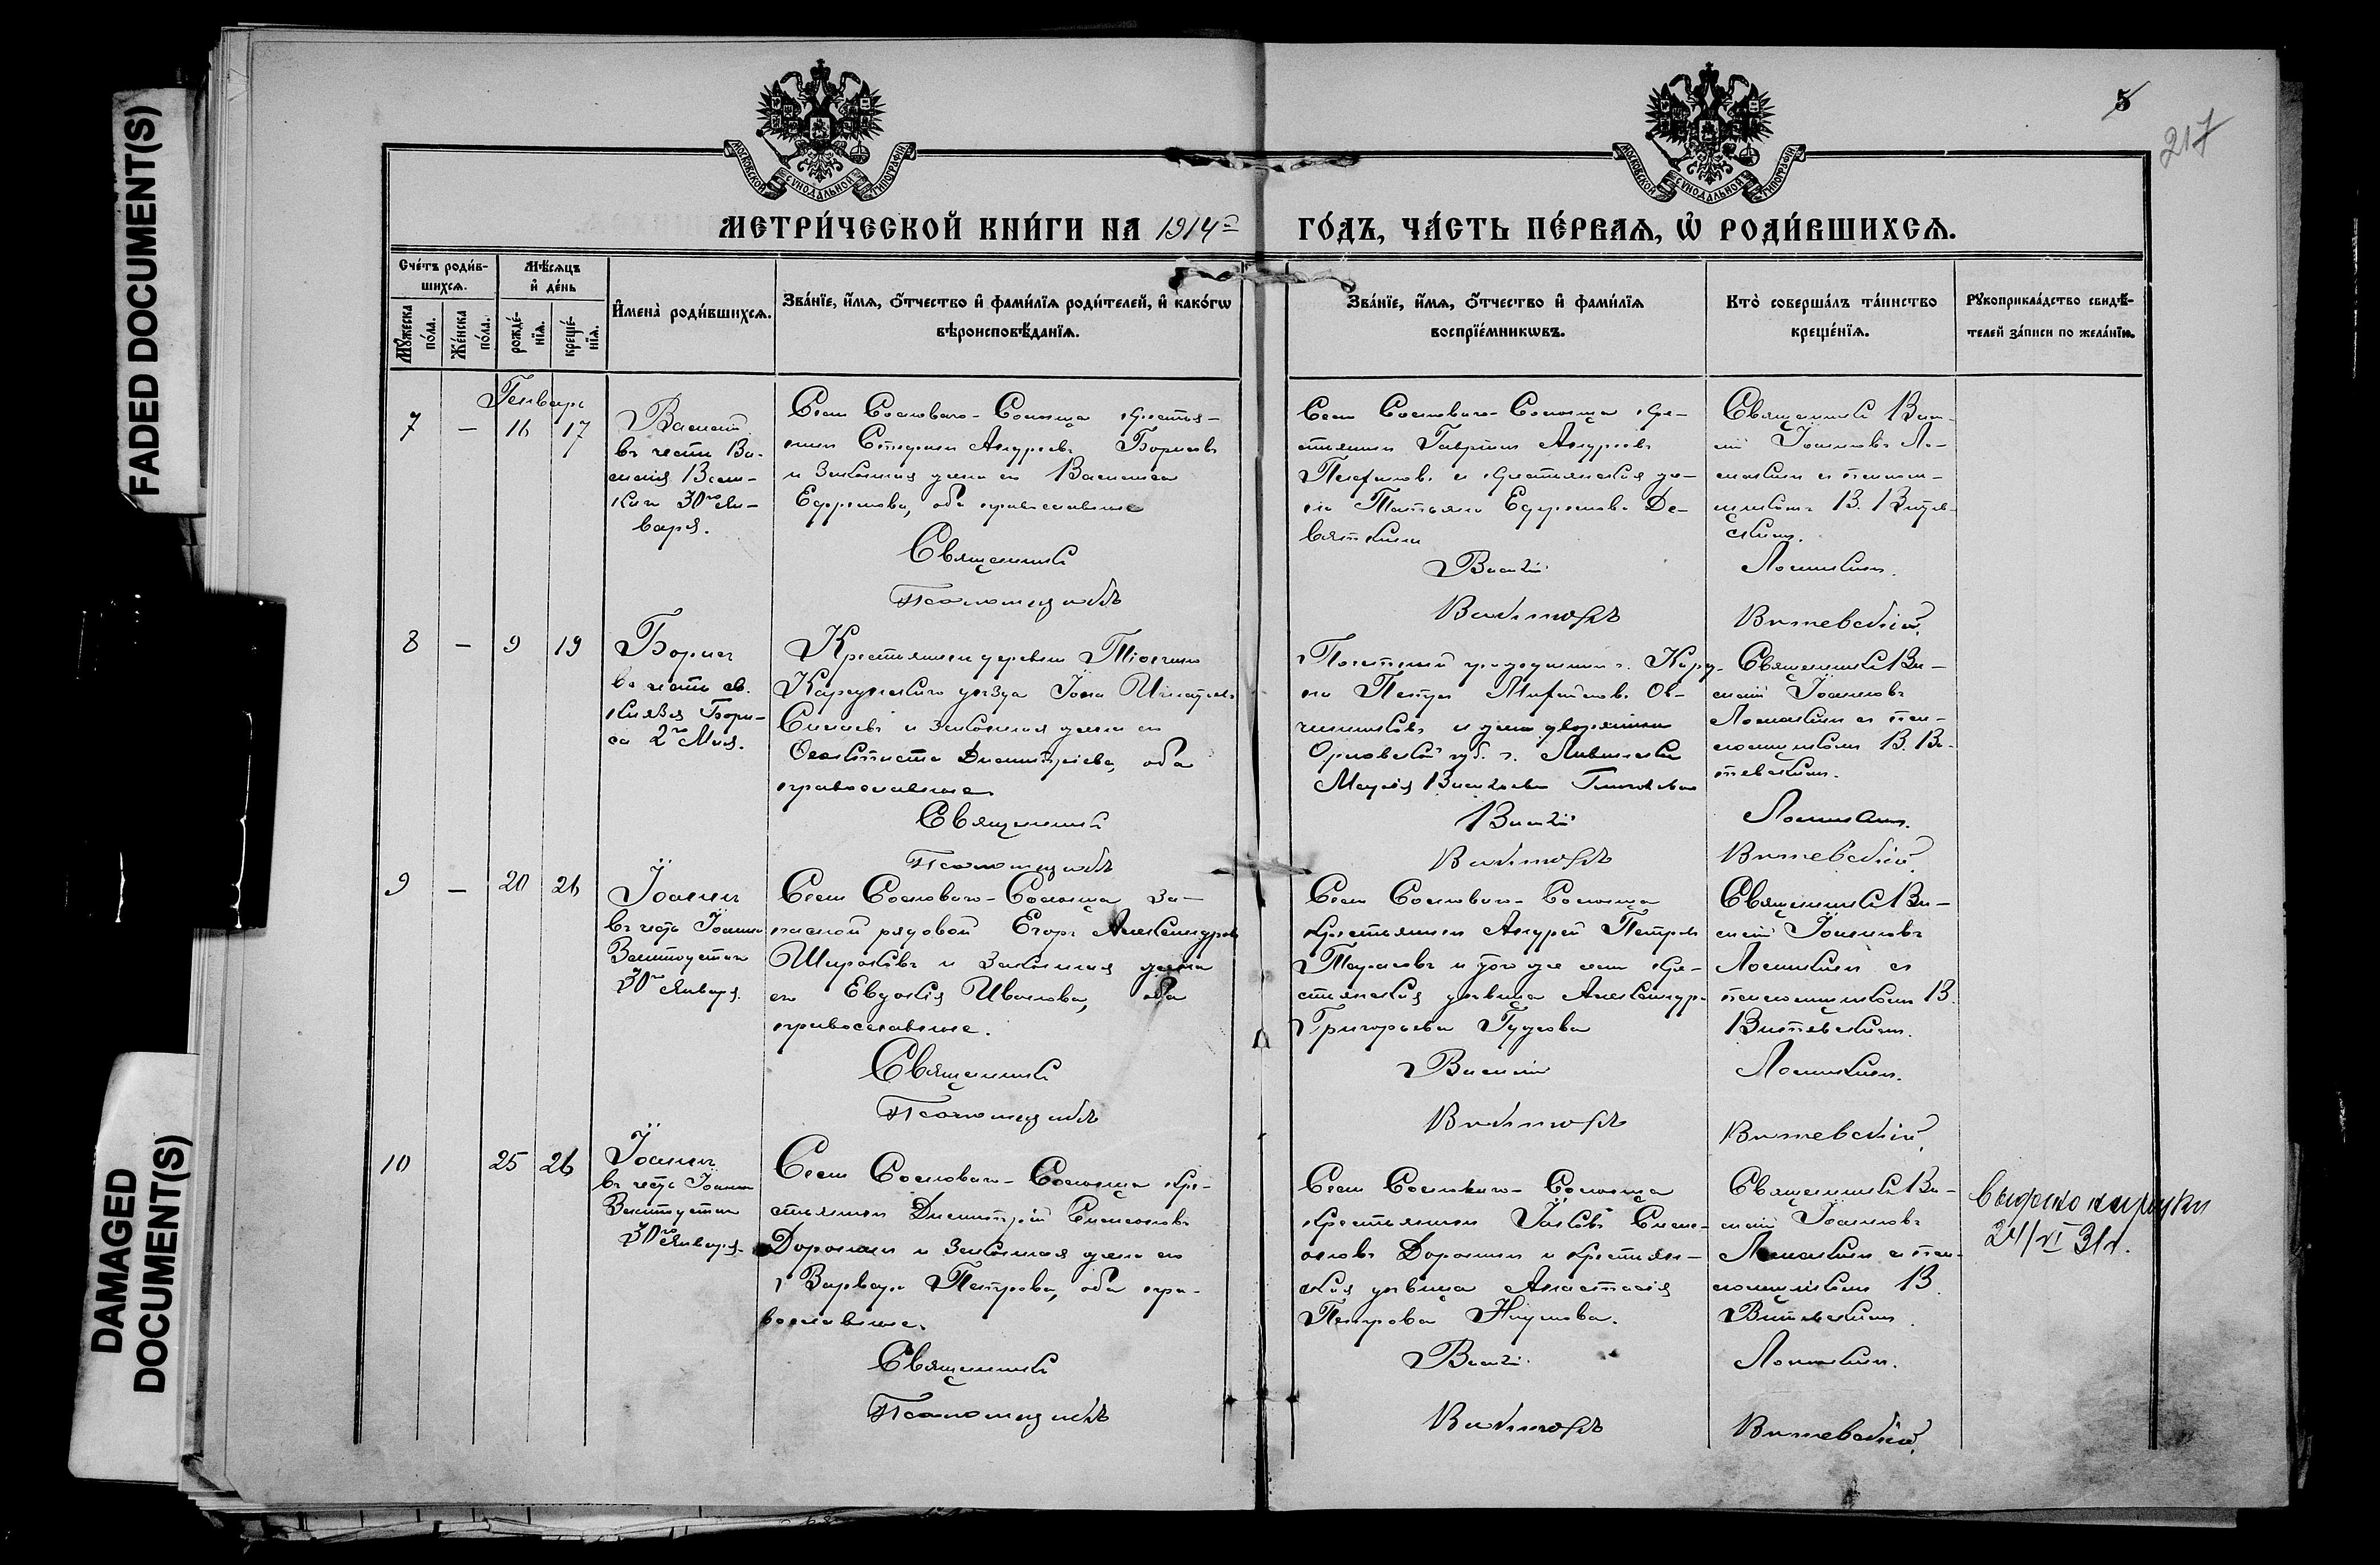 FADED DOCUMENT(S)
DAMAGED
DOCUMENT(S)
МОСКОВСКОЙ СѴНОДАЛЬНОЙ ТИПОГРАФІИ
МОСКОВСКОЙ СѴНОДАЛЬНОЙ ТИПОГРАФІИ
5
217
МЕТРИ́ЧЕСКОЙ КНИ́ГИ НА 1914 ГО́ДЪ, ЧА́СТЬ ПЕ́РВАѦ, Ѡ҆ РОДИ́ВШИХСѦ.
Сче́тъ роди́в-
шихсѧ.
Мꙋ́жеска
по́ла.
Же́нска
по́ла.
Мѣ́сѧцъ
и҆ де́нь
рожде́-
нїѧ.
креще́-
нїѧ.
И҆мена̀ роди́вшихсѧ.
Зва́нїе, и҆́мѧ, ѻ҆́тчество и҆ фами́лїѧ роди́телей, и҆ како́гѡ
вѣроисповѣ́данїѧ.
Зва́нїе, и҆́мѧ, ѻ҆́тчество и҆ фами́лїѧ
воспрїе́мникѡвъ.
Кто̀ соверша́лъ та́инство
креще́нїѧ.
Рꙋкоприкла́дство свидѣ́-
телей за́писи по жела́нїю.
Генварь
7 — 16 17
Василій
въ честь Ва-
силія Вели-
каго 30го Ян-
варя.
Села Сосноваго-Солонца крестья-
нинъ Стефанъ Андреевъ Борисовъ
и законная жена его Василиса
Ефремова, оба православные
Священникъ
Псаломщикъ
Села Сосноваго-Солонца кре-
стьянинъ Гавріилъ Андреевъ
и крестьянская же-
на Татьяна Ефремова Де-
вяткина
Василій
Викторъ
Священникъ Васи-
лій Іоанновъ Ло-
макинъ и псалом-
щикомъ В. Витев-
скимъ.
Ломакинъ.
Витевскій.
8 — 9 19
Борисъ
въ честь св.
князя Бори-
са 2го Мая.
Крестьянинъ деревни
Карсунскаго уѣзда Іона Игнатьевъ
и законная жена его
Ѳеоктиста Димитріева, оба
православные
Священникъ
Псаломщикъ
Петръ Ов-
чинниковъ и дочь дворянина
Орловской губ. г.
Марія Васильева
Василій
Викторъ
Священникъ Ва-
силій Іоанновъ
Ломакинъ съ пса-
ломщикомъ В. Ви-
тевскимъ.
Ломакинъ.
Витевскій
9 — 20 26
Іоаннъ
въ честь Іоанна
Златоустаго
30го Января.
Села Сосноваго-Солонца за-
пасной рядовой Егоръ Александровъ
Широковъ и законная жена
его Евдокія Иванова, оба
православные.
Священникъ
Псаломщикъ
Села Сосноваго-Солонца
крестьянинъ Андрей Петровъ
Тарасовъ и того же села кре-
стьянская дѣвица Александра
Григорьева Гудкова
Василій
Викторъ
Священникъ Ва-
силій Іоанновъ
Ломакинъ съ
псаломщикомъ В.
Витевскимъ.
Ломакинъ.
Витевскій.
10 25 26
Іоаннъ
въ честь Іоанна
Златоустаго
30го Января.
Села Сосноваго-Солонца кре-
стьянинъ Димитрій Симеоновъ
Доронинъ и законная жена его
Варвара Петрова, оба пра-
вославные.
Священникъ
Псаломщикъ
Села Сосноваго-Солонца
крестьянинъ Іаковъ Симе-
оновъ Доронинъ и крестьян-
ская дѣвица Анастасія
Петрова Наумова.
Василій
Викторъ
Священникъ Ва-
силій Іоанновъ
Ломакинъ съ пса-
ломщикомъ В.
Витевскимъ.
Ломакинъ.
Витевскій.
24/VI 31г.